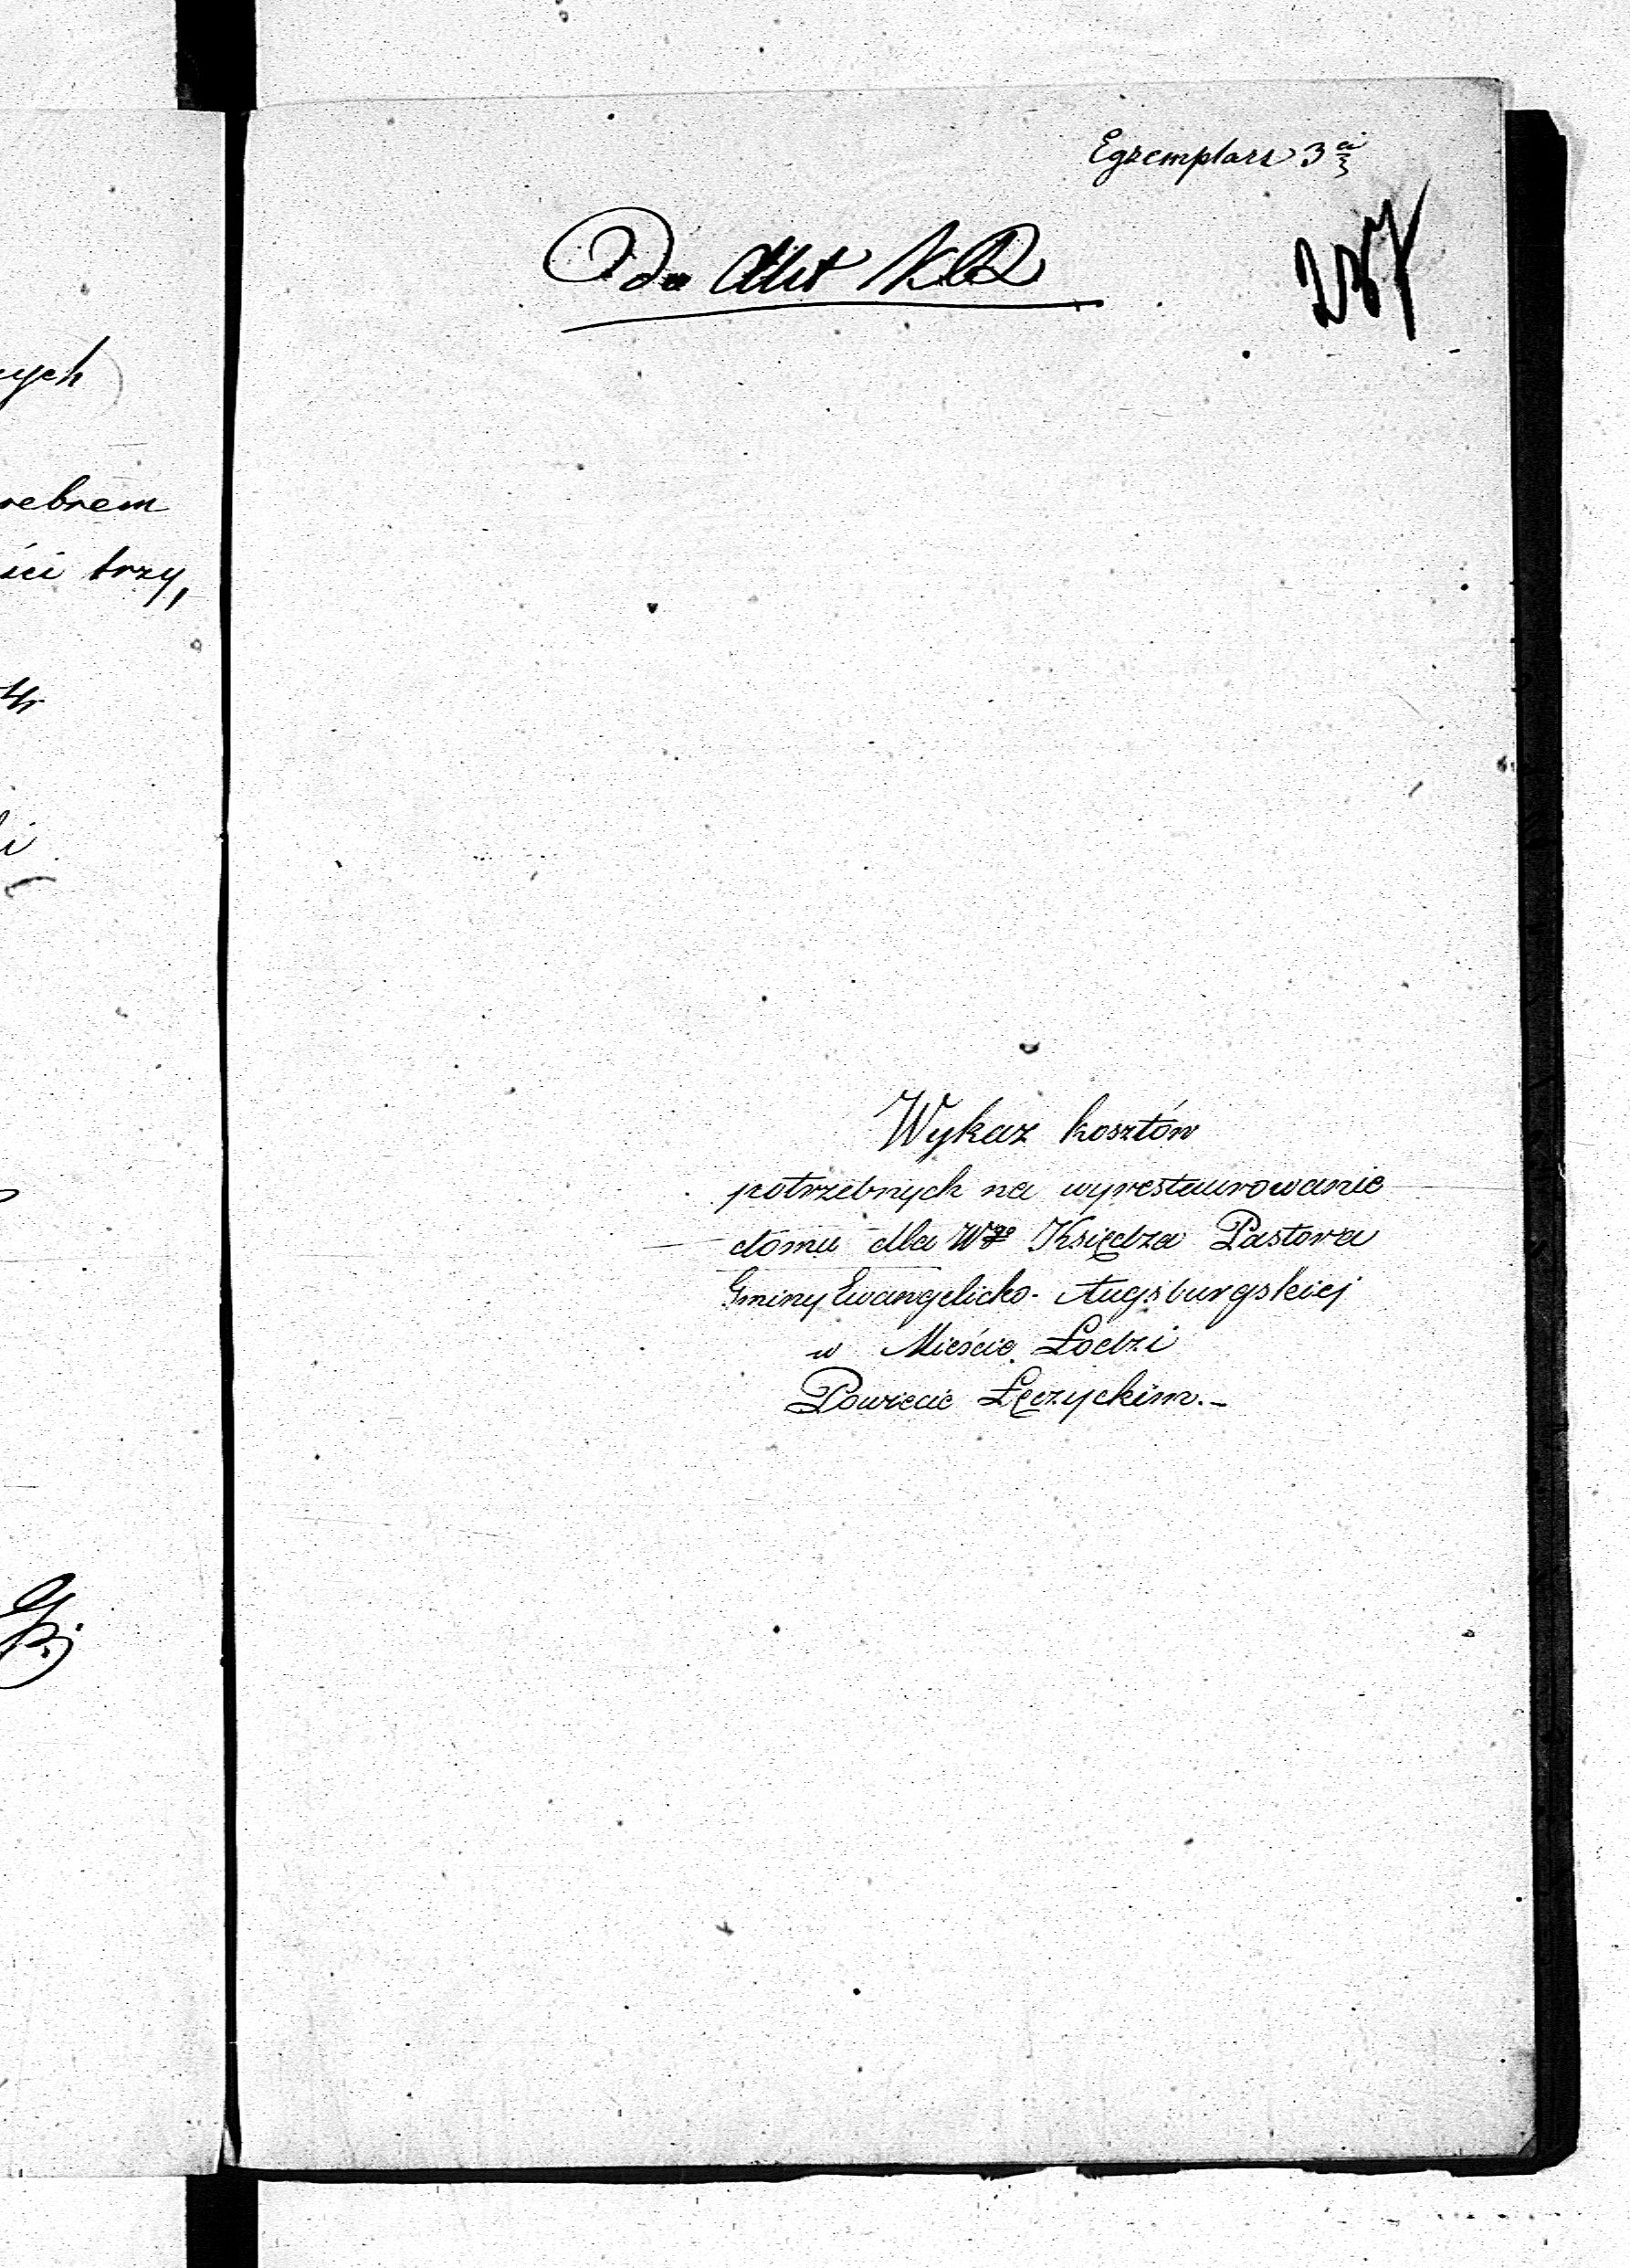 ych
rebrem
ści trzy,
Egzemplarz 3ci
do Akt
257
Wykaz kosztów
potrzebnych na wyrestaurowanie
domu dla Wgo Księdza Pastora
Gminy Ewangelicko-Augsburgskiej
w Mieście Łodzi
Powiecie Łęczyckim.-